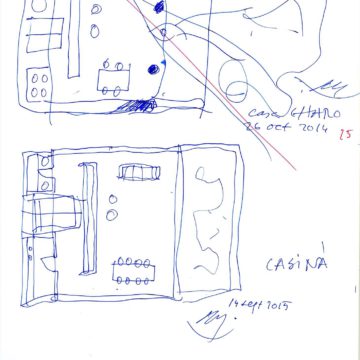 casa GHARO
26 oct 2014
25
CASINÀ
14 sept 2015